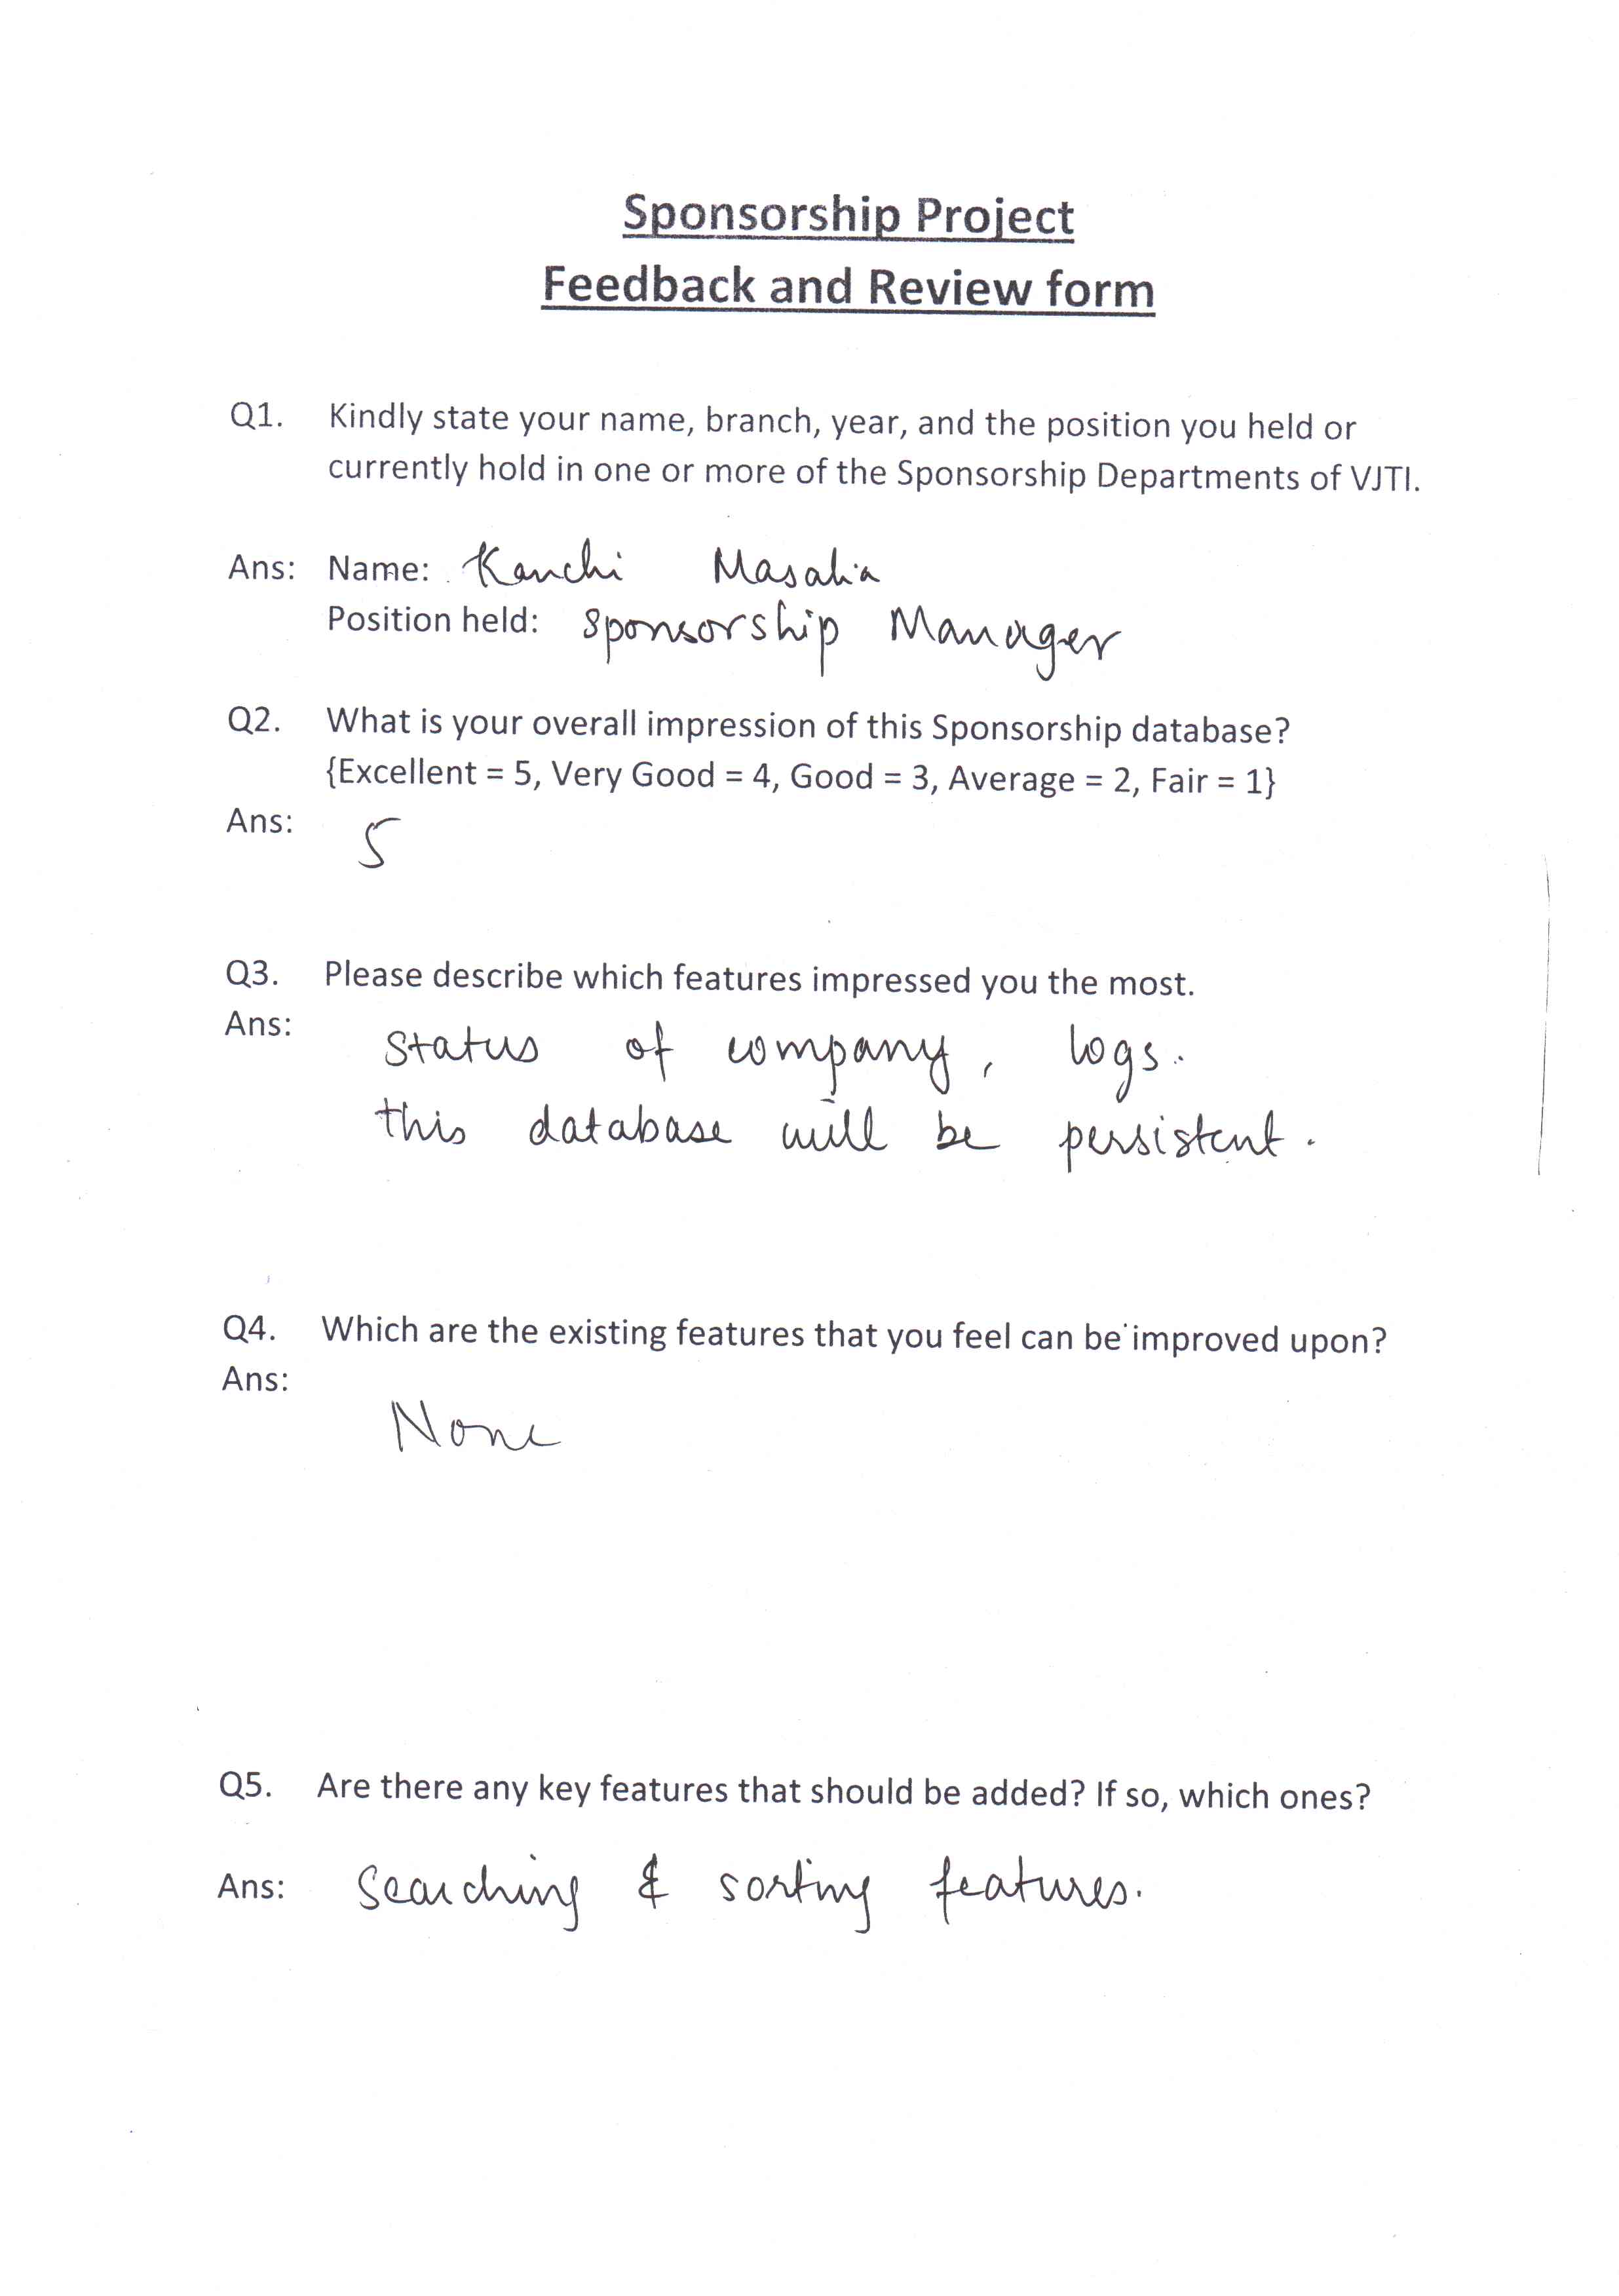 Sponsorship Project
Feedback and Review form
Q1. Kindly state your name, branch, year, and the position you held or
currently hold in one or more of the Sponsorship Departments of VJTI.
Ans: Name: Kanchi Masalia
Position held: Sponsorship Manager
Q2. What is your overall impression of this Sponsorship database?
{Excellent = 5, Very Good = 4, Good = 3, Average = 2, Fair = 1}
Ans: 5
Q3. Please describe which features impressed you the most.
Ans: Status of company, logs.
this database will be persistent.
Q4. Which are the existing features that you feel can be improved upon?
Ans:
None
Q5. Are there any key features that should be added? If so, which ones?
Ans: Searching & sorting features.